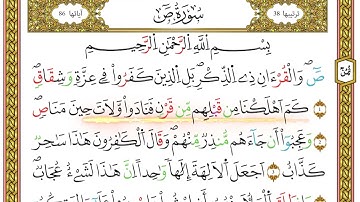 ترتيبها 38
سُورَةُ صٓ
آياتها 86
بِسْمِ اللَّهِ الرَّحْمَٰنِ الرَّحِيمِ
صٓ وَالْقُرْءَانِ ذِي الذِّكْرِ بَلِ الَّذِينَ كَفَرُوا فِي عِزَّةٍ وَشِقَاقٍ
كَمْ أَهْلَكْنَا مِن قَبْلِهِم مِّن قَرْنٍ فَنَادَوا وَّلَاتَ حِينَ مَنَاصٍ
وَعَجِبُوا أَن جَاءَهُم مُّنذِرٌ مِّنْهُمْ وَقَالَ الْكَٰفِرُونَ هَٰذَا سَٰحِرٌ
كَذَّابٌ أَجَعَلَ الْآلِهَةَ إِلَٰهًا وَٰحِدًا إِنَّ هَٰذَا لَشَيْءٌ عُجَابٌ